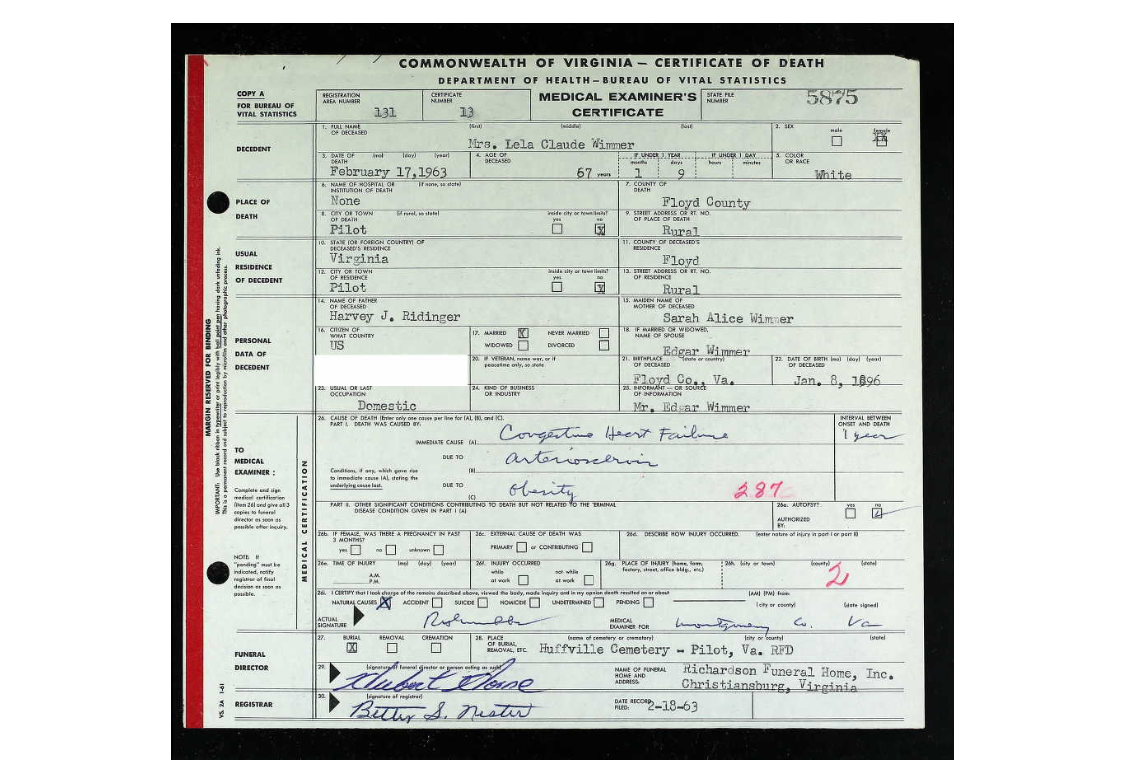 COMMONWEALTH OF VIRGINIA — CERTIFICATE OF DEATH
DEPARTMENT OF HEALTH—BUREAU OF VITAL STATISTICS
COPY A
FOR BUREAU OF VITAL STATISTICS
REGISTRATION AREA NUMBER 131
CERTIFICATE NUMBER 13
MEDICAL EXAMINER'S CERTIFICATE
STATE FILE NUMBER 5875
DECEDENT
1. FULL NAME OF DECEASED (first) (middle) (last)
Mrs. Lela Claude Wimmer
2. SEX male female
3. DATE OF DEATH (mo) (day) (year)
February 17,1963
4. AGE OF DECEASED
67 years
IF UNDER 1 YEAR months days
1 9
IF UNDER 1 DAY hours minutes
5. COLOR OR RACE
White
PLACE OF DEATH
6. NAME OF HOSPITAL OR INSTITUTION OF DEATH (if none, so state)
None
7. COUNTY OF DEATH
Floyd County
8. CITY OR TOWN OF DEATH (if rural, so state)
Pilot
inside city or town limits? yes no X
9. STREET ADDRESS OR RT. NO. OF PLACE OF DEATH
Rural
USUAL RESIDENCE OF DECEDENT
10. STATE (OR FOREIGN COUNTRY) OF DECEASED'S RESIDENCE
Virginia
11. COUNTY OF DECEASED'S RESIDENCE
Floyd
12. CITY OR TOWN OF RESIDENCE
Pilot
inside city or town limits? yes no X
13. STREET ADDRESS OR RT. NO. OF RESIDENCE
Rural
PERSONAL DATA OF DECEDENT
14. NAME OF FATHER OF DECEASED
Harvey J. Ridinger
15. MAIDEN NAME OF MOTHER OF DECEASED
Sarah Alice Wimmer
16. CITIZEN OF WHAT COUNTRY
US
17. MARRIED X NEVER MARRIED
WIDOWED DIVORCED
18. IF MARRIED OR WIDOWED, NAME OF SPOUSE
Edgar Wimmer
20. IF VETERAN, name war, or if peacetime only, so state
21. BIRTHPLACE (state or country) OF DECEASED
Floyd Co., Va.
22. DATE OF BIRTH (mo) (day) (year) OF DECEASED
Jan. 8, 1896
23. USUAL OR LAST OCCUPATION
Domestic
24. KIND OF BUSINESS OR INDUSTRY
25. INFORMANT — OR SOURCE OF INFORMATION
Mr. Edgar Wimmer
MARGIN RESERVED FOR BINDING
IMPORTANT: Use black ribbon in typewriter or print legibly with ball point pen having dark unfading ink.
This is a permanent record and subject to reproduction by microfilm and other photographic process.
TO MEDICAL EXAMINER:
Complete and sign medical certification (item 26) and give all 3 copies to funeral director as soon as possible after inquiry.
NOTE: If "pending" must be indicated, notify registrar of final decision as soon as possible.
MEDICAL CERTIFICATION
26. CAUSE OF DEATH (Enter only one cause per line for (A), (B), and (C).
PART I. DEATH WAS CAUSED BY:
INTERVAL BETWEEN ONSET AND DEATH
IMMEDIATE CAUSE (A) Congestive Heart Failure 1 year
DUE TO (B)
Conditions, if any, which gave rise to immediate cause (A), stating the underlying cause last.
DUE TO (C) Obesity
287
PART II. OTHER SIGNIFICANT CONDITIONS CONTRIBUTING TO DEATH BUT NOT RELATED TO THE TERMINAL DISEASE CONDITION GIVEN IN PART I (A)
26a. AUTOPSY? yes no
AUTHORIZED BY:
26b. IF FEMALE, WAS THERE A PREGNANCY IN PAST 3 MONTHS?
yes no unknown
26c. EXTERNAL CAUSE OF DEATH WAS
PRIMARY or CONTRIBUTING
26d. DESCRIBE HOW INJURY OCCURRED. (enter nature of injury in part I or part II)
26e. TIME OF INJURY (mo) (day) (year)
A.M.
P.M.
26f. INJURY OCCURRED
while at work not while at work
26g. PLACE OF INJURY (home, farm, factory, street, office bldg., etc.)
26h. (city or town) (county) (state)
2
26i. I CERTIFY that I took charge of the remains described above, viewed the body, made inquiry and in my opinion death resulted on or about (AM) (PM) from:
NATURAL CAUSES X ACCIDENT SUICIDE HOMICIDE UNDETERMINED PENDING
(city or county) (date signed)
ACTUAL SIGNATURE
MEDICAL EXAMINER FOR Montgomery Co. Va
FUNERAL DIRECTOR
27. BURIAL X REMOVAL CREMATION
28. PLACE OF BURIAL, REMOVAL, ETC. (name of cemetery or crematory) (city or county) (state)
Huffville Cemetery - Pilot, Va. RFD
29. (signature of funeral director or person acting as such)
NAME OF FUNERAL HOME AND ADDRESS:
Richardson Funeral Home, Inc.
Christiansburg, Virginia
REGISTRAR
30. (signature of registrar)
Betty S. Nester
DATE RECORD FILED: 2-18-63
VS. 2A 1-61